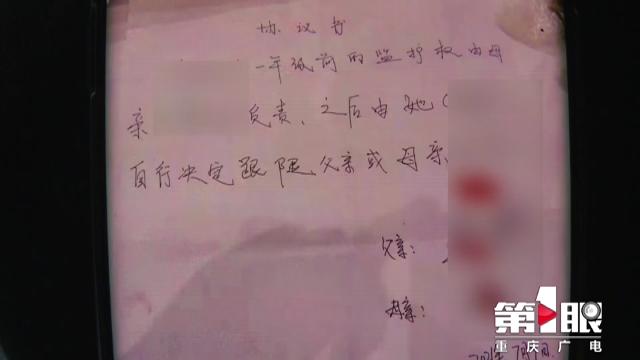 协议书
一年级前的监护权由母
亲 负责、之后由她(
自行决定跟随父亲或母亲
父亲:
母亲:
第1眼
重庆广电